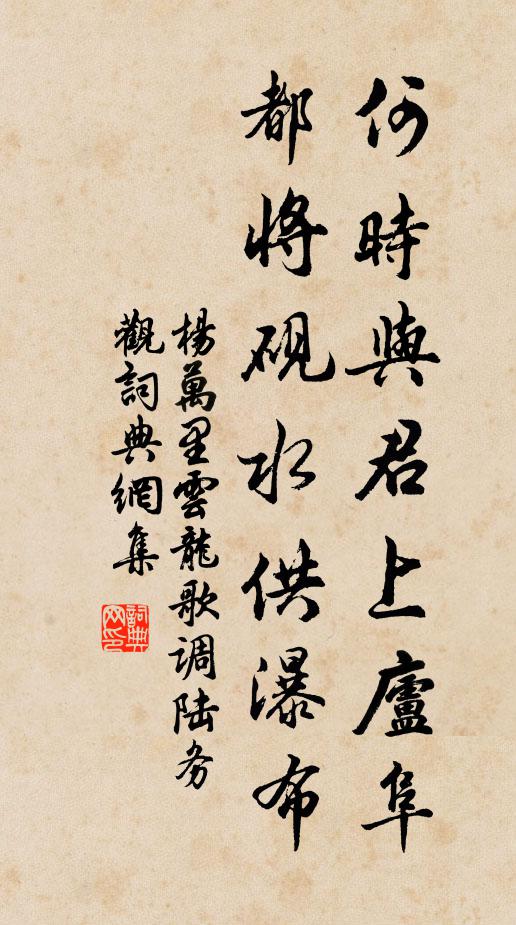 何時與君上廬阜
都將硯水供瀑布
楊萬里雲龍歌调陆务
觀詞典網集
詞典
网印